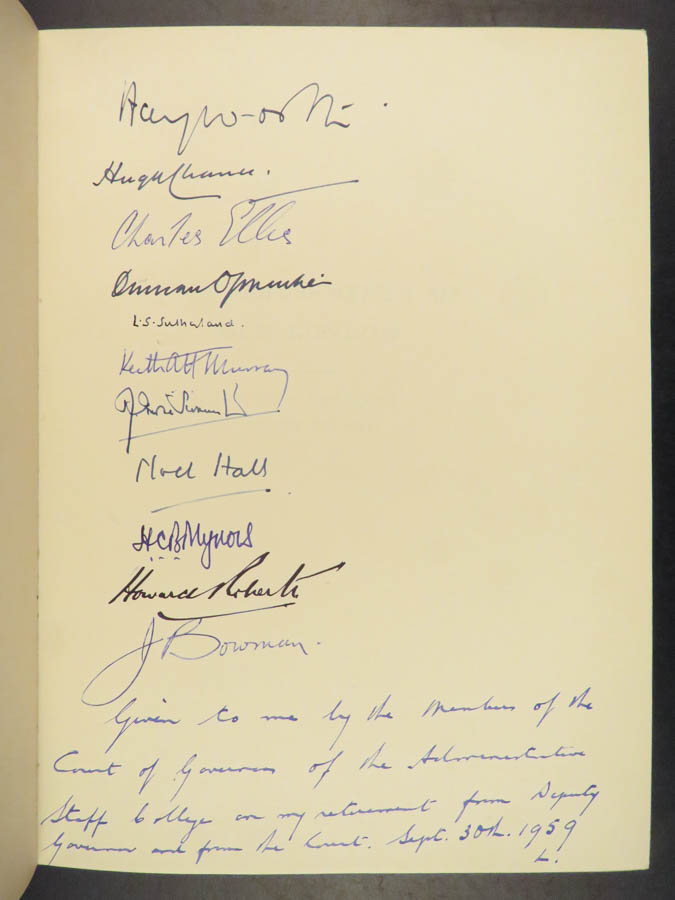 Heyworth.
Hugh Chance.
Charles Ellis
Duncan Oppenheim
L.S. Sutherland.
Keith A H Murray
Noel Hall
HCB Mynors
Howard Roberts
J Bowman.
Given to me by the Members of the
Court of Governors of the Administrative
Staff College on my retirement from Deputy
Governor and from the Court. Sept. 30th. 1959
L.